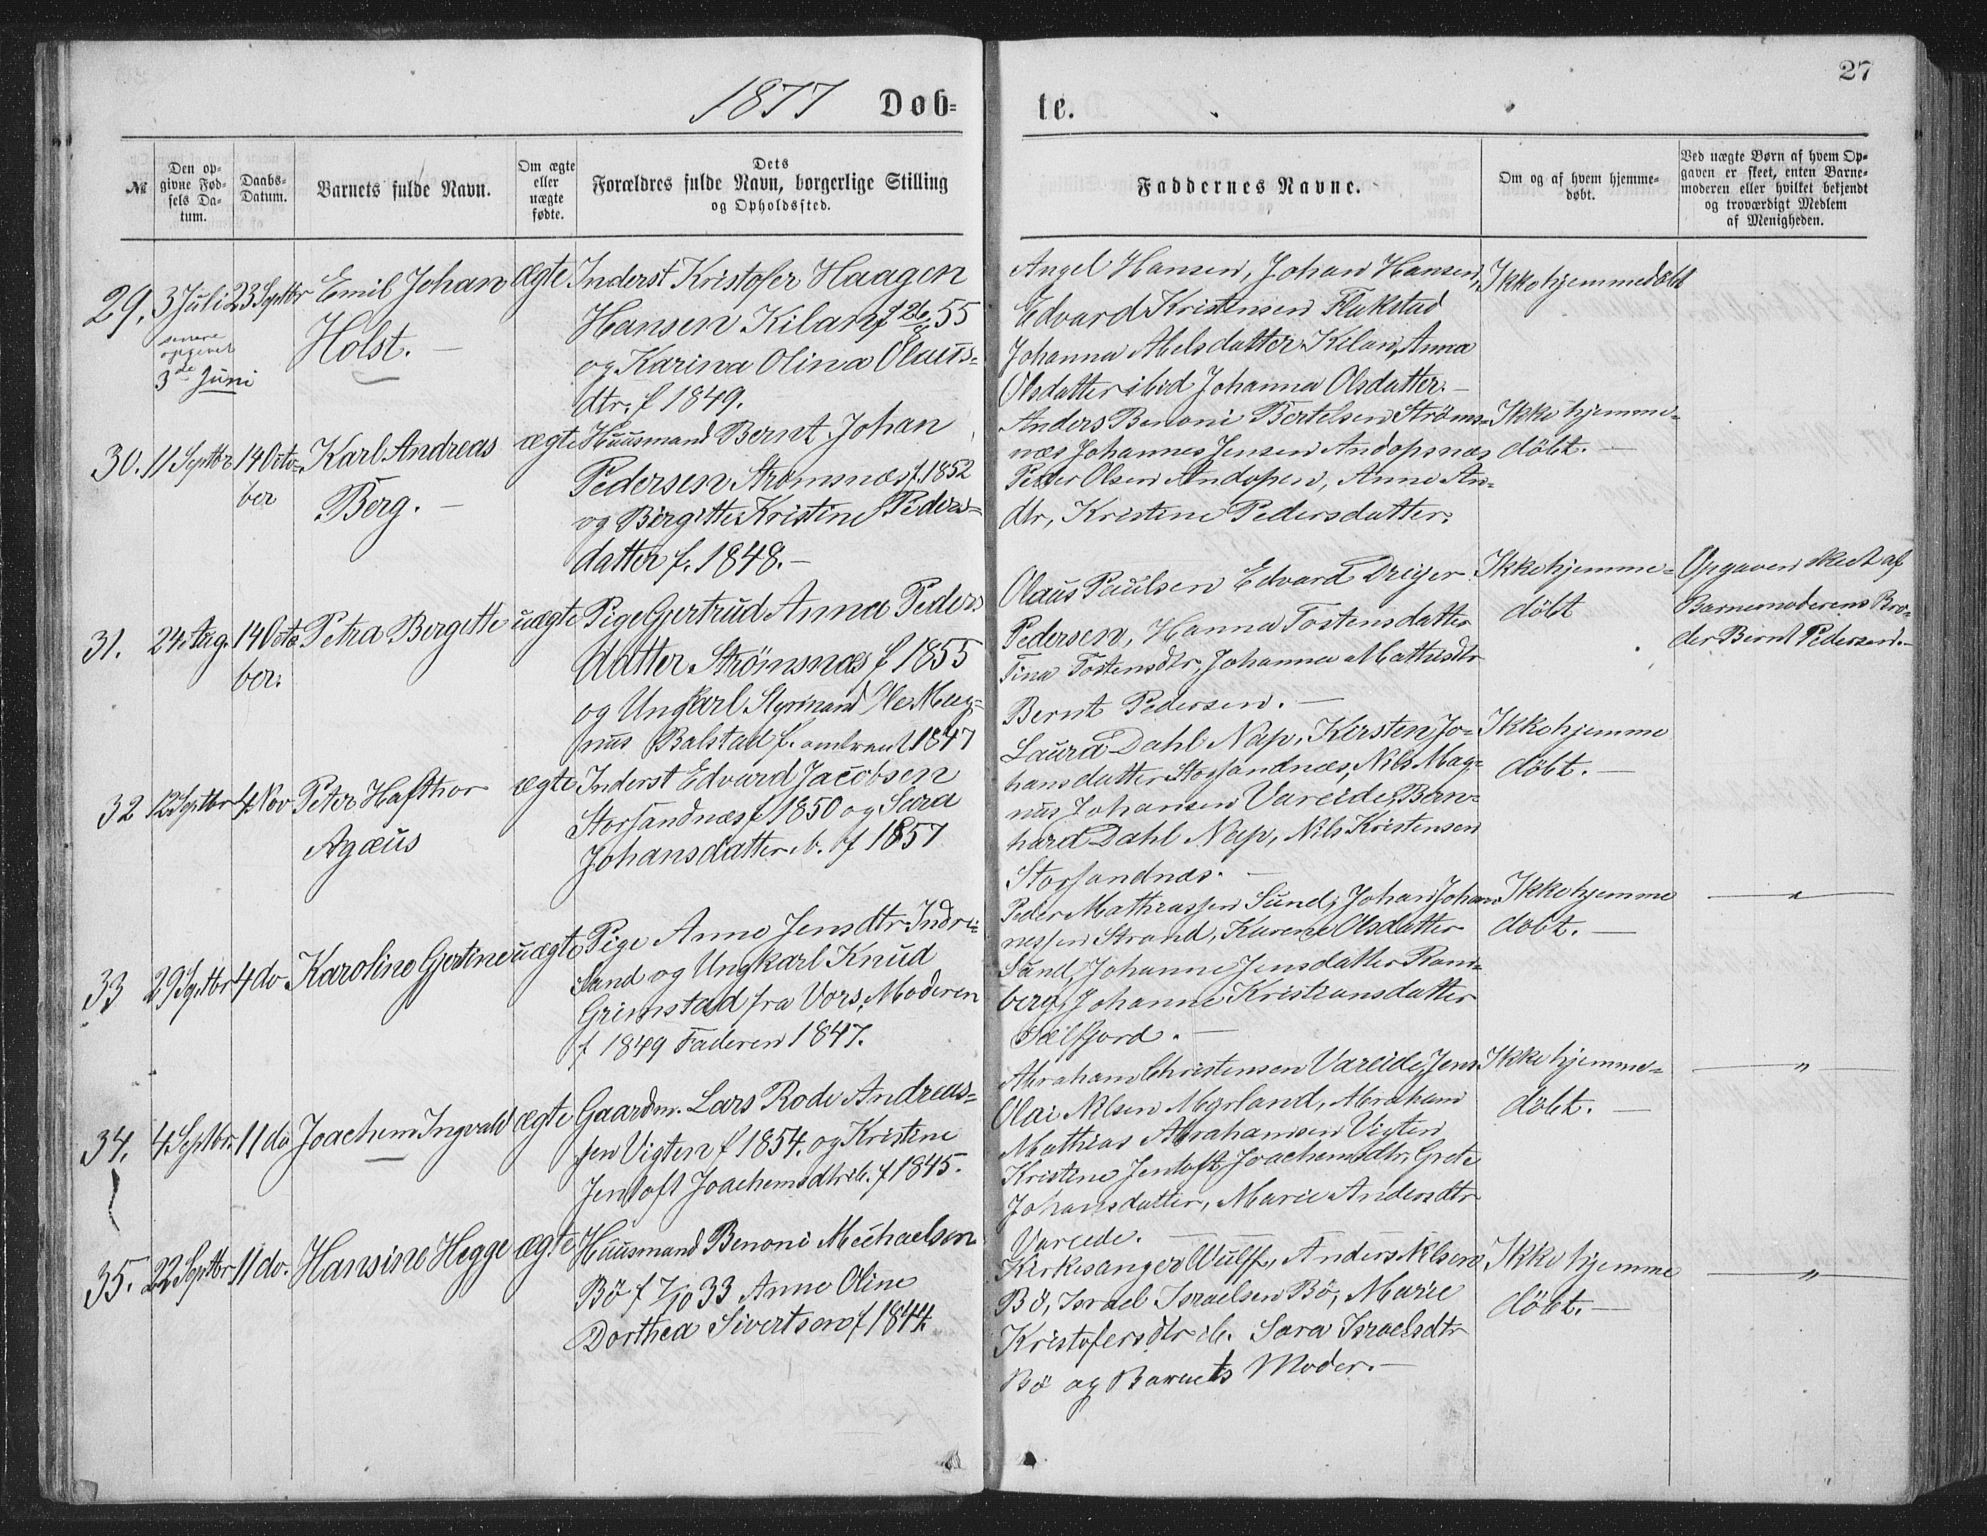 1877 Døb-
te.
27
№
Den op-
givne Fød-
sels Da-
tum.
Daabs-
Datum.
Barnets fulde Navn.
Om ægte
eller
uægte
fødte.
Dets
Forældres fulde Navn, borgerlige Stilling
og Opholdssted.
Faddernes Navne.
Om og af hvem hjemme-
døbt.
Ved uægte Børn af hvem Op-
gaven er skeet, enten Barne-
moderen eller hvilket bekjendt
og troværdigt Medlem
af Menigheden.
29.
3 Juli
senere
opgivet
3de Juni
23 Septbr
Emil Johan
Holst. —
ægte
Inderst Kristofer Haagen
Hansen Kilan f 26/8 55
og Karina Olina Olaus-
dtr. f 1849.
Angel Hansen, Johan Hansen,
Edvard Kristensen Flakstad
Johanna Abelsdatter Kilan, Anna
Olsdatter ibid Johanna Olsdatter. —
Ikke hjemmedöbt
30.
11 Septbr
14 Octo-
ber
Karl Andreas
Berg. —
ægte
Huusmand Bernt Johan
Pedersen Strømsnæs f. 1852
og Birgitte Kristine Peders-
datter f. 1848. —
Anders Benoni Bertelsen Ströms-
næs Johannes Jensen Andopsnæs
Peder Olsen Andopen, Anne An-
dtr, Kristine Pedersdatter.
Ikke hjemme-
döbt. —
31.
24. Aug.
14 Octo
ber.
Petra Bergette
uægte
Pige Gjertrud Anna Peders
datter Strömsnæs f 1855
og Ungkarl Styrmand Ole Mag-
nus Balstad f. omtrent 1847
Olaus Paulsen Edvard Dreyer
Pedersen, Hanna Tostensdatter
Tina Tostensdtr, Johanna Mathisdtr
Bernt Pedersen. —
Ikke hjemme-
döbt
Opgaven skeet af
Barnemoderens Bro-
der Bernt Pedersen. —
32
12 Septbr
4 Nov
Peter Hafthor
Agæus
ægte
Inderst Edvard Jacobsen
Storsandnæs f 1850 og Sara
Johansdatter ib. f 1857
Laura Dahl Nap, Kirsten Jo-
hansdatter Storsandnæs, Nils Mag-
nus Johansen Vareide, Bern-
hard Dahl Nap, Nils Kristensen
Storsandnæs. —
Ikke hjemme
döbt. —
33
29 Septbr
4 do
Karoline Gjertine
uægte
Pige Anne Jensdtr Indre-
Sand og Ungkarl Knud
Grimstad fra Vors, Moderen
f 1849 Faderen 1847.
Peder Mathiassen Sund, Johan Johan
nessen Strand, Karene Olsdatter
Sund, Johanne Jensdatter Ram-
berg, Johanne Kristiansdatter
Sælfjord. —
Ikke hjemme
döbt. —
— " —
34.
4 Septbr.
11 do
Joachem Ingvald
ægte
Gaardm. Lars Rode Andreas-
sen Vigten f 1854. og Kristine
Jentoft Joachemsdtr ib. f 1845.
Abraham Christensen Vareide, Jens
Olai Nilsen Myrland, Abraham
Mathias Abrahamsen Vigten
Kristine Jentoft Joachemsdtr, Grete
Johansdatter, Marie Andersdtr
Vareide. —
Ikke hjemme-
döbt. —
— " —
35.
22 Septbr
11 do.
Hansine Hegge
ægte
Huusmand Benoni Mechaelsen
Bö f 7/10 33 Anne Oline
Dorthea Sivertsen f 1844.
Kirkesanger Wulff, Anders Nilsen
Bö, Israel Israelsen Bö, Marie
Kristofersdtr ib. Sara Israelsdtr
Bö og Barnets Moder. —
Ikke hjemme
döbt. —
— " —